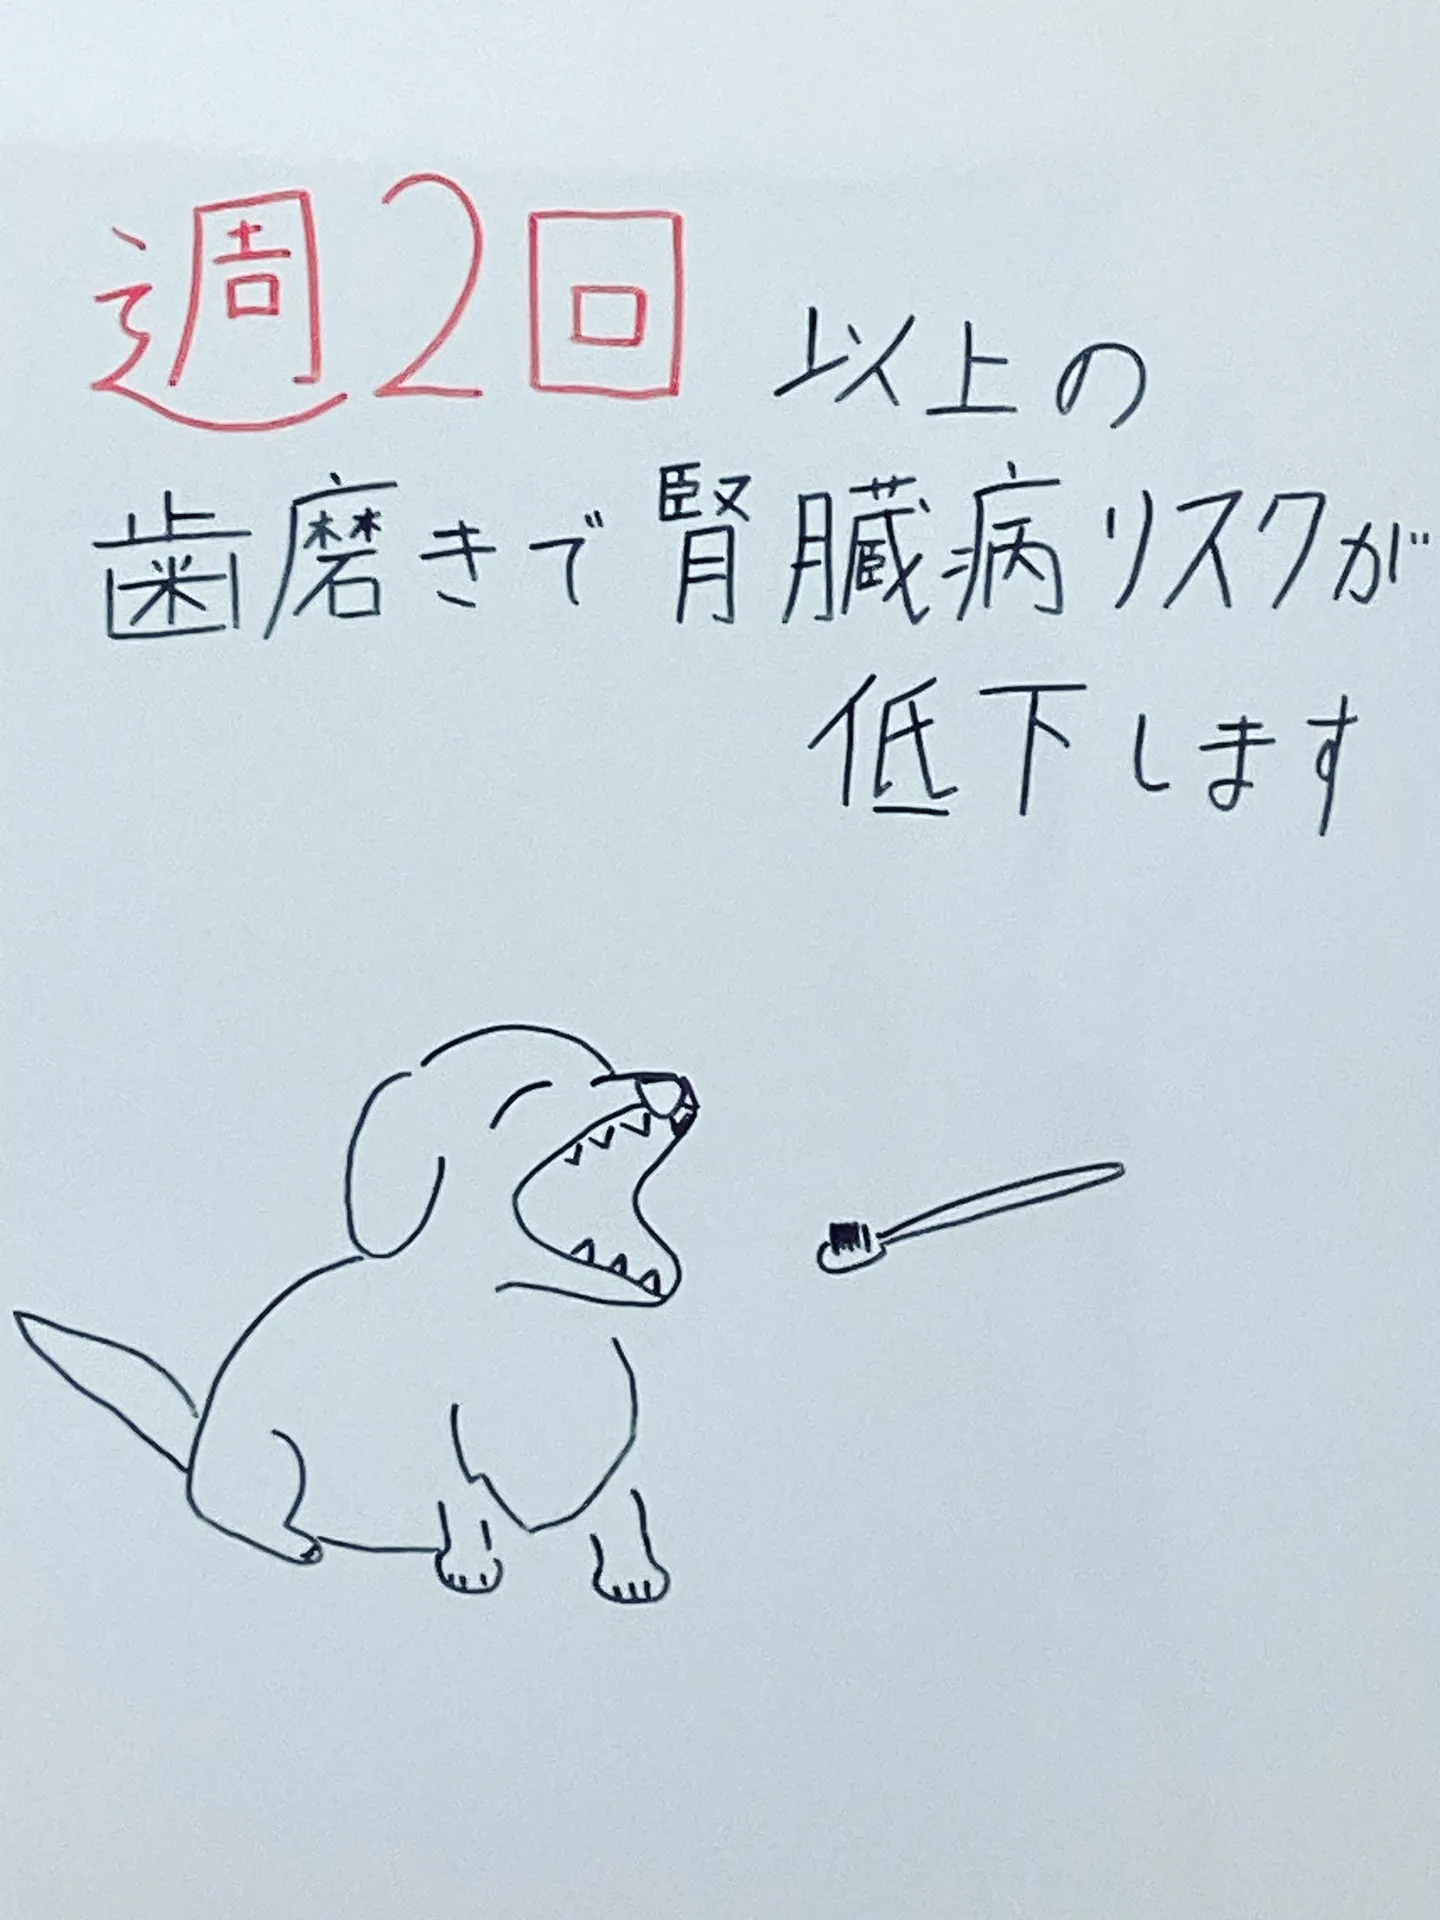 週2回以上の
歯磨きで腎臓病リスクが
低下します